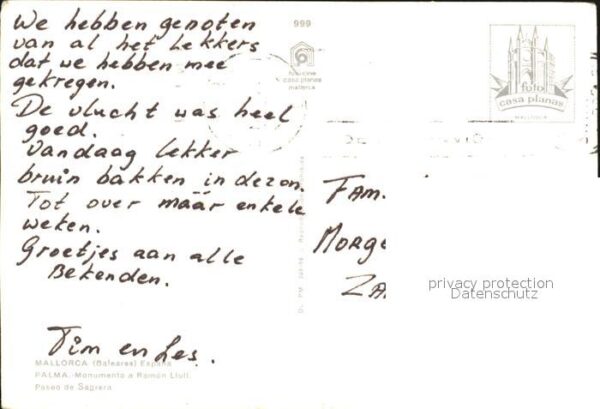 We hebben genoten
van al het lekkers
dat we hebben mee
gekregen.
De vlucht was heel
goed.
Vandaag lekker
bruin bakken in de zon.
Tot over maar enkele
weken.
Groetjes aan alle
Bekenden.
Tim en Les.
MALLORCA (Baleares) España
PALMA - Monumento a Ramón Llull.
Paseo de Sagrera
999
foto cine
casa planas
mallorca
foto
casa planas
MALLORCA
FAM.
MORGE
ZA
privacy protection
Datenschutz